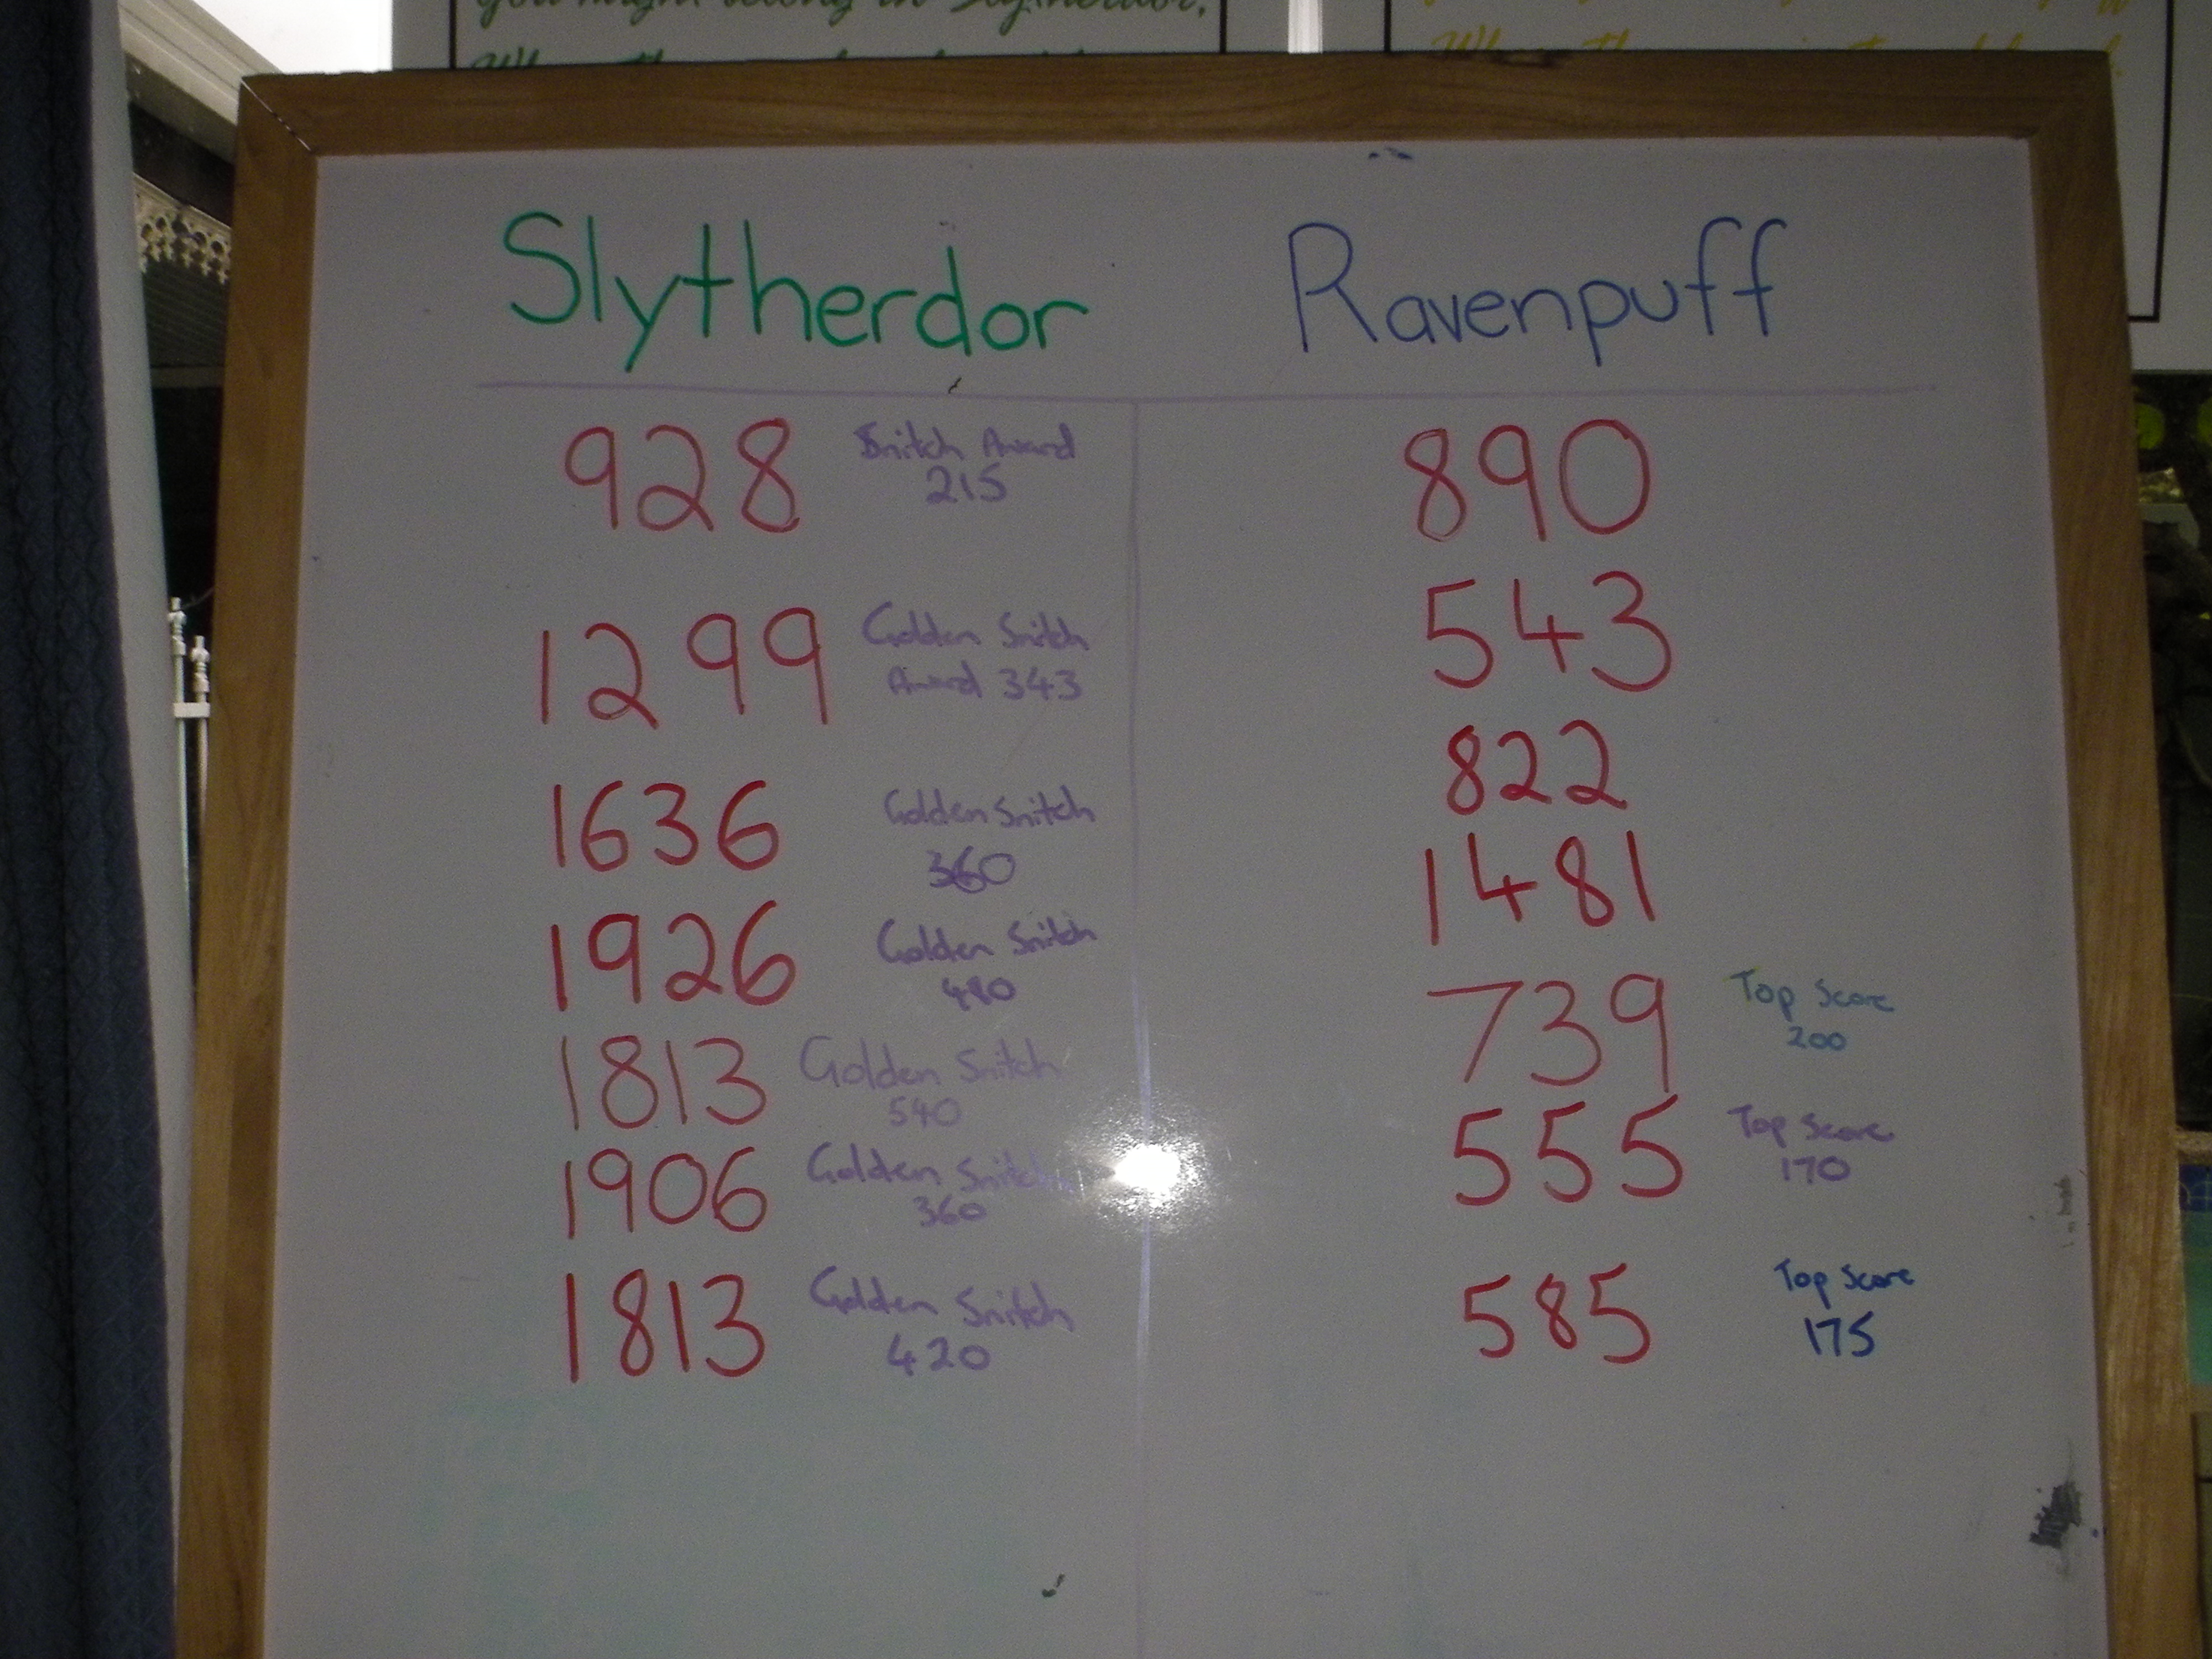 you might belong in Slytherdor,
Slytherdor
Ravenpuff
928
Snitch Award
215
1299
Golden Snitch
Award 343
1636
Golden Snitch
360
1926
Golden Snitch
480
1813
Golden Snitch
540
1906
Golden Snitch
360
1813
Golden Snitch
420
890
543
822
1481
739
Top Score
200
555
Top Score
170
585
Top Score
175